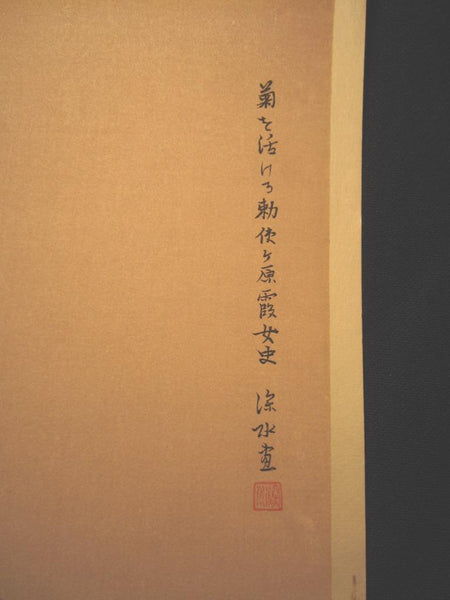 菊を活ける勅使ヶ原霞女史 深水画